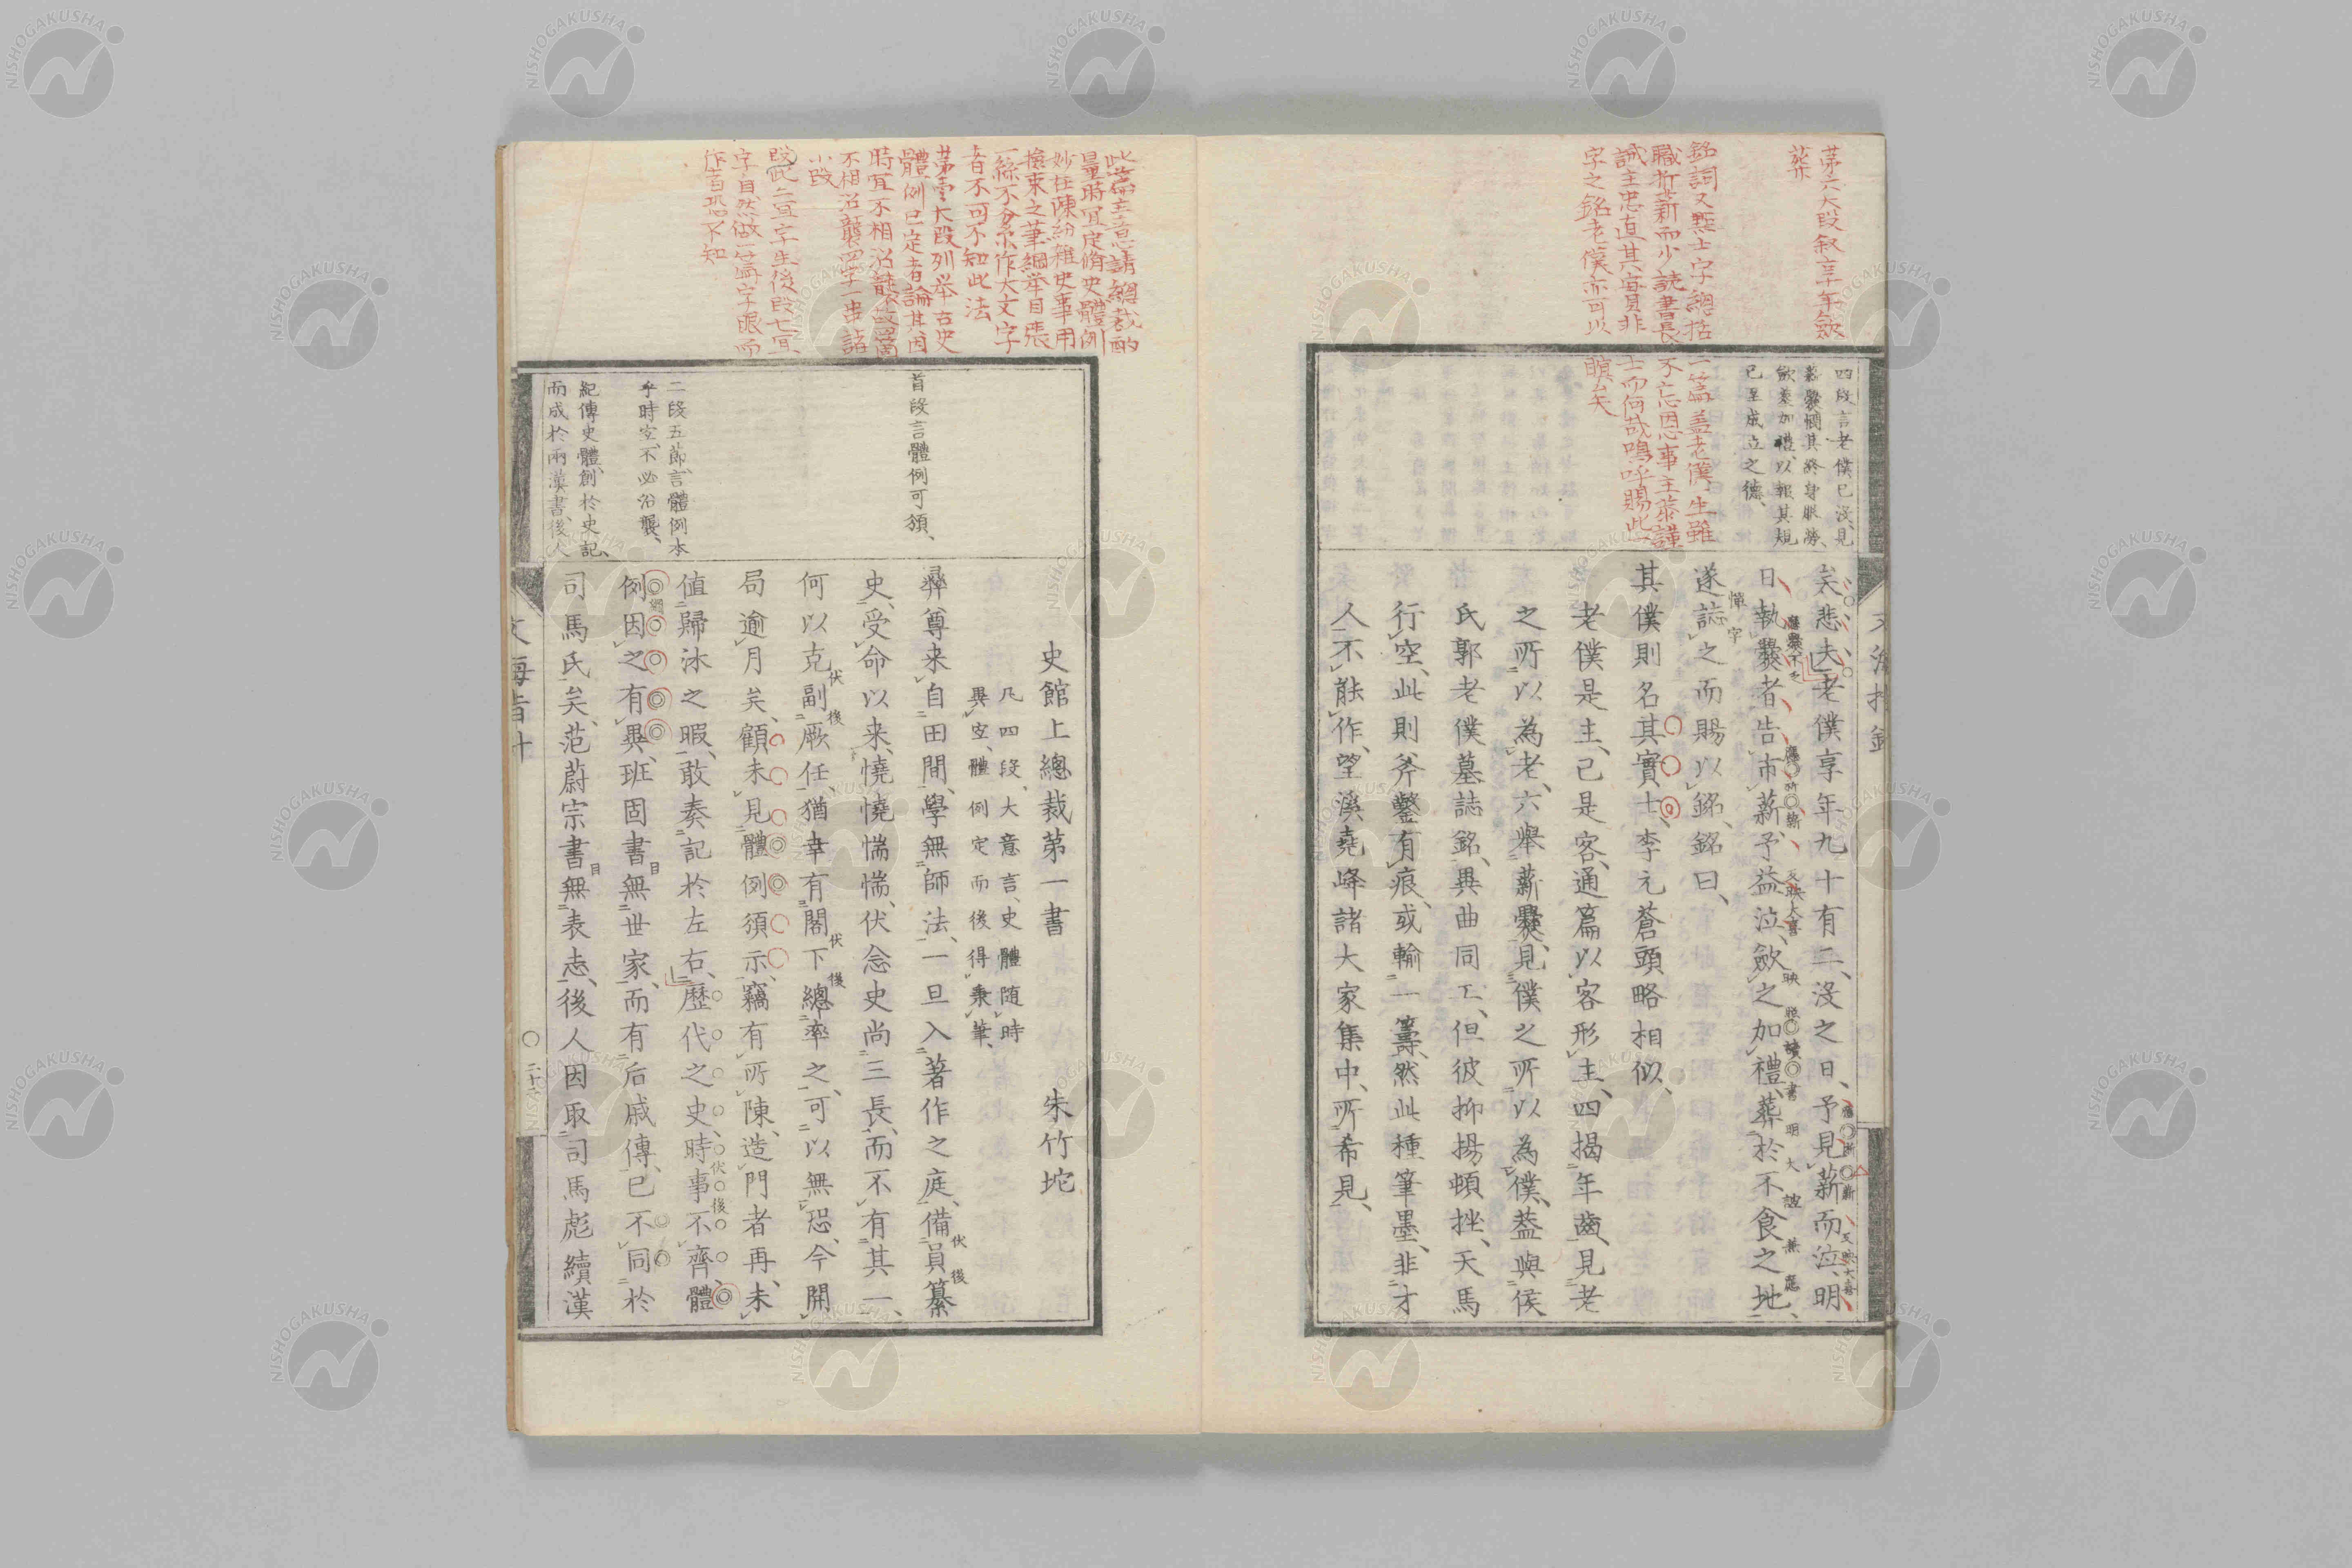 第六大段叙享年歛
葬
銘詞又點士字總括
職折薪而少読書長
誡主忠直其實非
字之銘老僕亦可以
一篇盖老僕一生雖
不忘因恩事主恭謹
士而何哉嗚呼賜此
瞑矣
四段言老僕已沒見
薪爨憫其終身服勞
歛葬加禮以報其規
已至成立之德
矣悲夫老僕享年九十有二沒之日予見薪而泣明
日執爨者告市薪予益泣歛之加禮葬於不食之地
遂誌之而賜以銘銘曰
其僕則名其實士李元蒼頭略相似
老僕是主已是客通篇以客形主四揭年齒見老
之所以為老六舉薪爨見僕之所以為僕葢與侯
氏郭老僕墓誌銘異曲同工但彼抑揚頓挫天馬
行空此則斧鑿有痕或輸一籌然此種筆墨非才
人不能作望溪堯峰諸大家集中所希見
此篇主意請總裁酌
量時宜定脩史體例
妙在陳紛雜史事用
檢束之筆綱举目張
一絲不紊作大文字
者不可不知此法
第壹大段列举古史
體例已定者論其因
時宜不相沿襲故
不相沿襲四字一串諸
小段
段此二宜字生後段七宜
字自然做一篇字眼而
作者恐不知
首段言體例可須
二段五節言體例本
乎時宜不必沿襲
紀傳史體創於史記
而成於兩漢書後人
史館上總裁第一書　朱竹垞
凡四段大意言史體随時
異宜體例定而後得秉筆
彝尊来自田間學無師法一旦入著作之庭備員纂
史受命以来憢憢惴惴伏念史尚三長而不有其一
何以克副厥任猶幸有閣下總率之可以無恐今開
局逾月矣顧未見體例須示竊有所陳造門者再未
值歸沐之暇敢奏記於左右歷代之史時事不齊體
例因之有異班固書無世家而有后戚傳已不同於
司馬氏矣范蔚宗書無表志後人因取司馬彪續漢
二十六
NISHOGAKUSHA